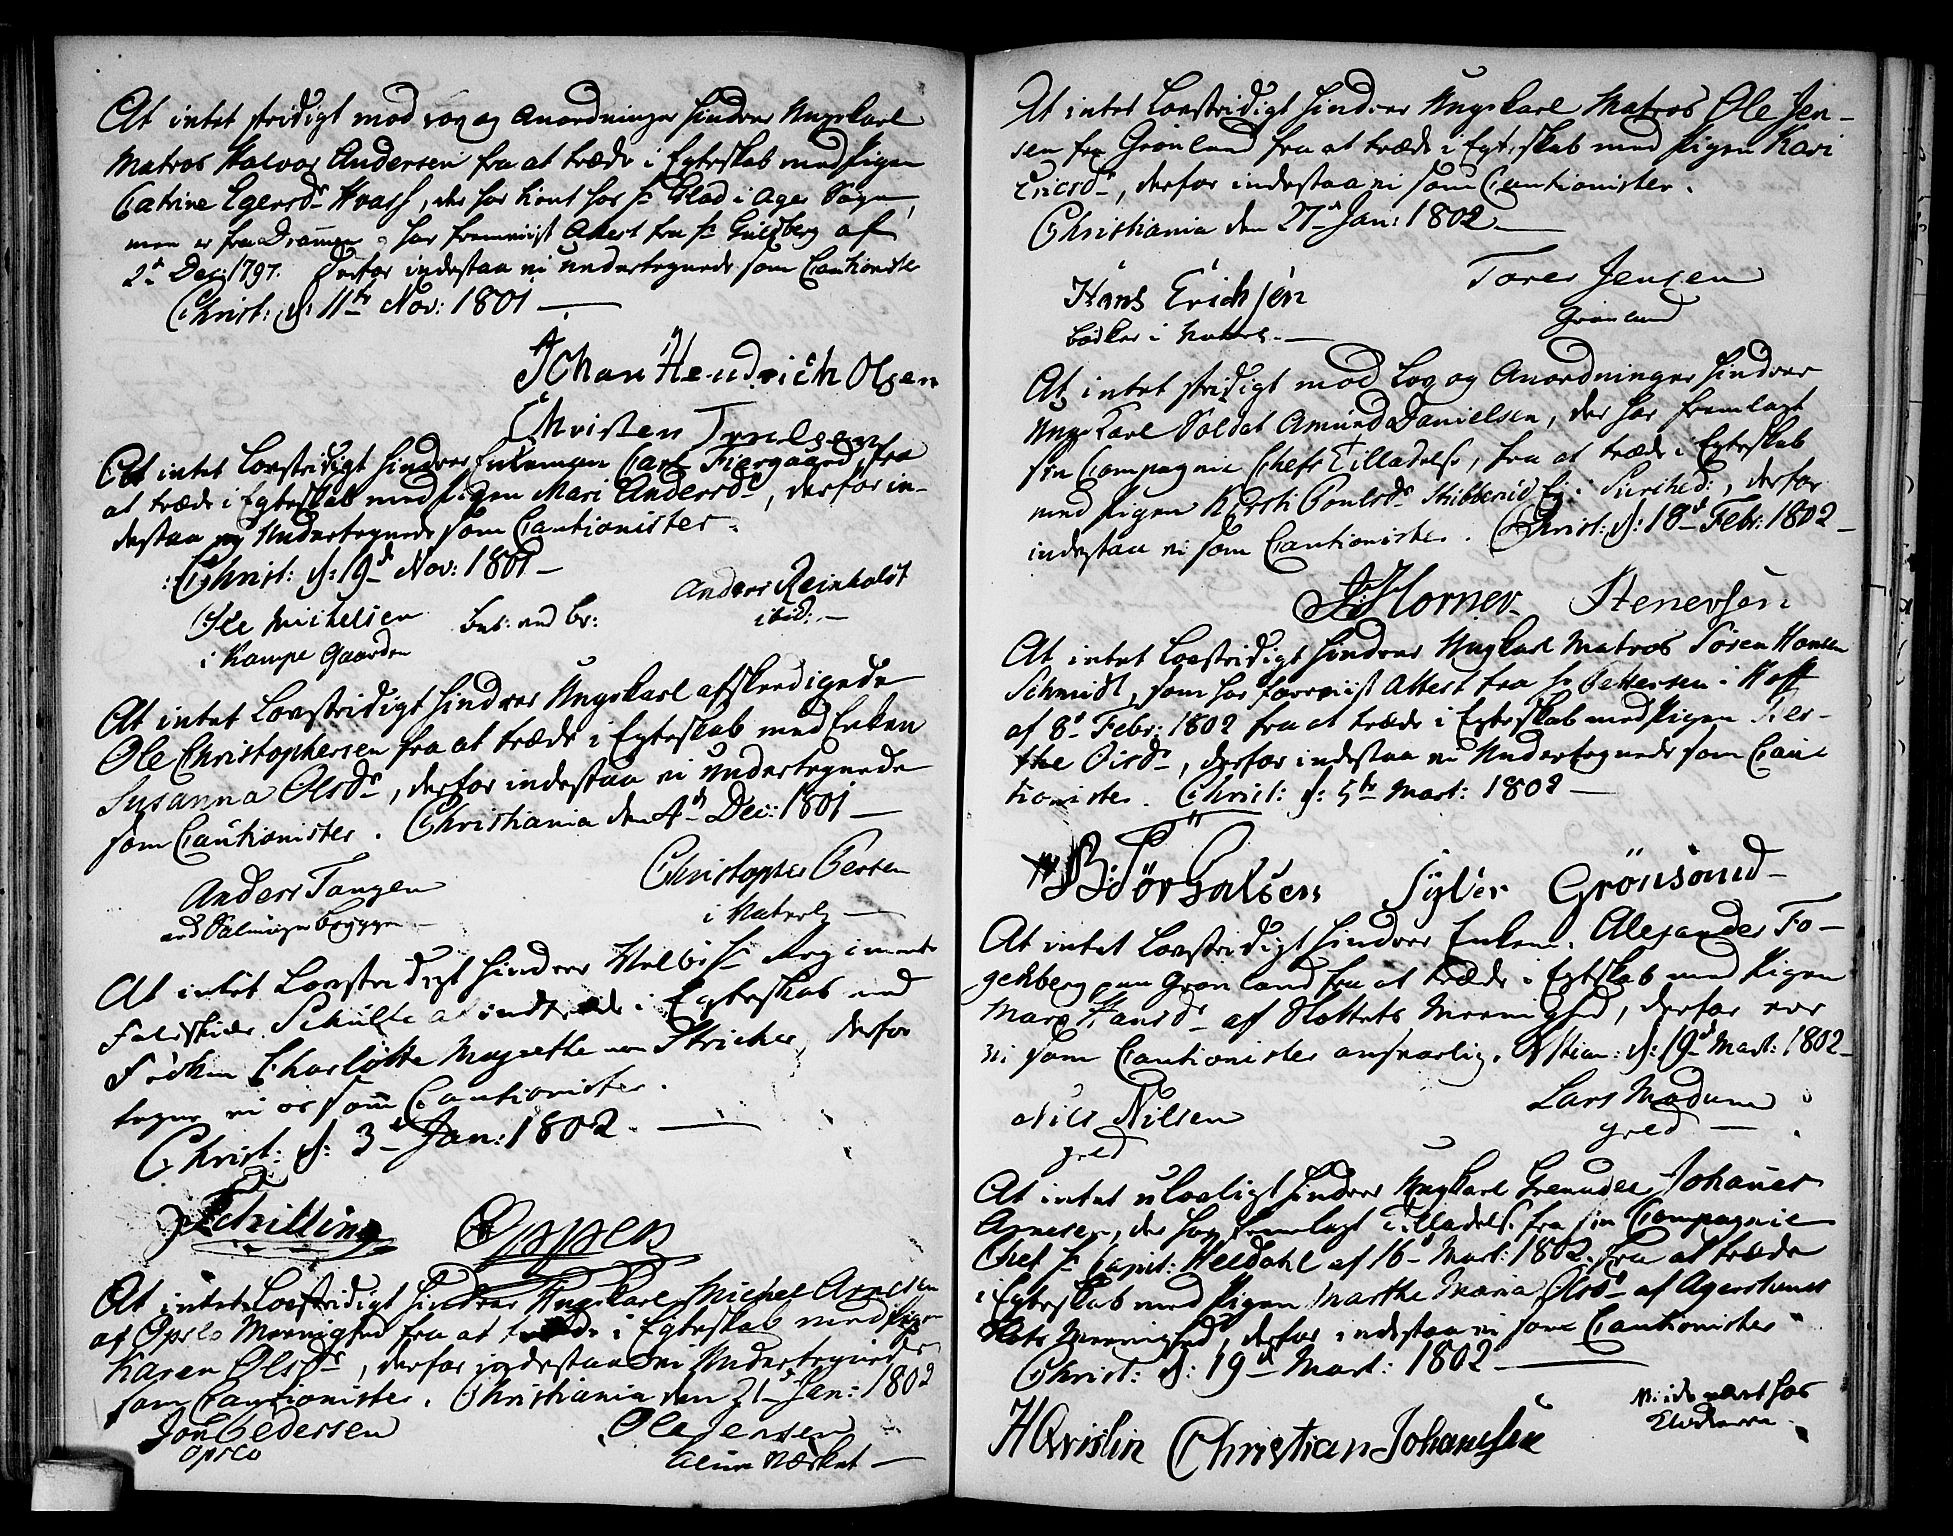 At intet stridigt mod Lov og Anordninger hindrer Ungekarl
Matros Halvor Andersen fra at træde i Egteskab med Pigen
Catrine Egersdr Hvass, der har tient hos Hr Glad i Ager Sogn,
men er fra Dramen og har fremviist Attest fra Hr Guldberg af
2d Dec: 1797. Derfor indestaa vi undertegnede som Cautionister
Christ: d: 11te Nov: 1801 —
Johan Hendrich Olsen
Christen
At intet Lovstridigt hindrer Enkeman Carl Fiergaard fra
at træde i Egteskab med Pigen Mari Andersdr, derfor in-
destaa vi Undertegnede som Cautionister.
Christ: d: 19d Nov: 1801 —
Ole Michelsen
i Kampe Gaarden
Anders Reinholdt
ibid: —
At intet Lovstridigt hindrer Ungekarl afskeedigede
Ole Christophersen fra at træde i Egteskab med Enken
Susanna Olsdr, derfor indestaa vi undertegnede
som Cautionister. Christiania den 4d Dec: 1801 —
Anders Tangen
Christopher Persen
At intet Lovstridigt hindrer
Feldskier Schulte at indtræde i Egteskab med
Frøken Charlotte Magrethe von Stricker, derfor
tegne vi os som Cautionister.
Christ: d: 3d Jan: 1802. —
Schilling Oppen
At intet Lovstridigt hindrer Ungekarl Michel Arnesen
af Opslo Meenighed fra at træde i Egteskab med Pigen
Karen Olsdr, derfor indestaa vi Undertegnede
som Cautionister. Christiania den 21d Jan: 1802
Jon Pedersen
Opslo
Ole Jensen
Alun Værket —
At intet Lovstridigt hindrer Ungekarl Matros Ole Jen-
sen fra Grønland fra at træde i Egteskab med Pigen Kari
Ericsdr, derfor indestaa vi som Cautionister.
Christiania den 27d Jan: 1802 —
Hans Erichsen
Bødker i
Tores Jensen
Grønland
At intet stridigt mod Lov og Anordninger hindrer
Ungekarl Soldat Amund Danielsen, der har fremlagt
sin Compagnie Chefs Tilladelse, fra at træde i Egteskab
med Pigen Kirsti Poulsdr, derfor
indestaa vi som Cautionister. Christ: d: 18d Febr: 1802 —
Horner Stenersen
At intet Lovstridigt hindrer Ungkarl Matros Søren Hansen
Schmidt, som har foreviist Attest fra Hr Pettersen i Hoff
af 8d Febr: 1802 fra at træde i Egteskab med Pigen Ker-
sthe Oisdr, derfor indestaa vi Undertegnede som Cau-
tionister. Christ: d: 5te Mart: 1802 —
Syver Grönsand
At intet Lovstridigt hindrer Enkem. Alexander Fo-
genberg paa Grønland fra at træde i Egtskab med Pigen
Maren Hansdr af Slottets Meenighed, derfor ere
vi som Cautionister ansvarlig. Xstian: d: 19d Mart: 1802 —
Nils Nilsen
Lars Modum
At intet ulovligt hindrer Ungkarl Grenadeer Johanes
Arnesen, der har fremlagt Tilladelse fra sin Compagnie
Chef Hr Capit: Heldahl af 16d Mart: 1802, fra at træde
i Egteskab med Pigen Marthe Maria Olsdr af Agershuus
Slots Meenighed, derfor indestaa vi som Cautionister
Christ: d: 19d Mart: 1802 —
H Qvislin Christian Johansen